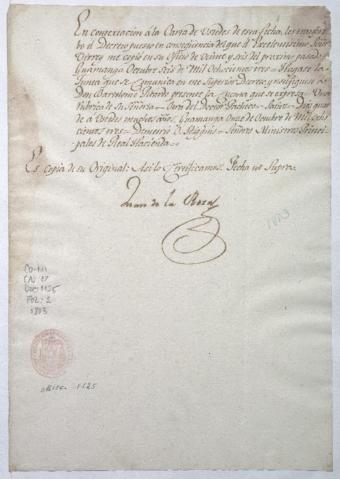 En contextacion à la Carta de Ustedes de esta fecha, les
bo el Decreto puesto en conseqüencia del que el Excelentisimo Señor
Virrey me copia en su Oficio de veinte y seis del proximo pasado
Guamanga Octubre Seis de mil Ochocientos tres = Hagase la
Junta que se comunica en este Superior Decreto, y notifiquese à
Don Bartolomé presente la que se expresa = Una
rubrica de su Señoria = Dios guar
de à Ustedes muchos años, Guamanga Onze de Octubre de Mil Ochò
cientos tres = Demetrio O Higgins = Señores Ministros Princi
pales de Real Hacienda =
Es copia de su Original: Asi lo Certificamos. Fecha ut Supra.
Juan de la Roza
1803
CO-MI
CAJ 17
DOC 1125
FOL: 2
1803
1125